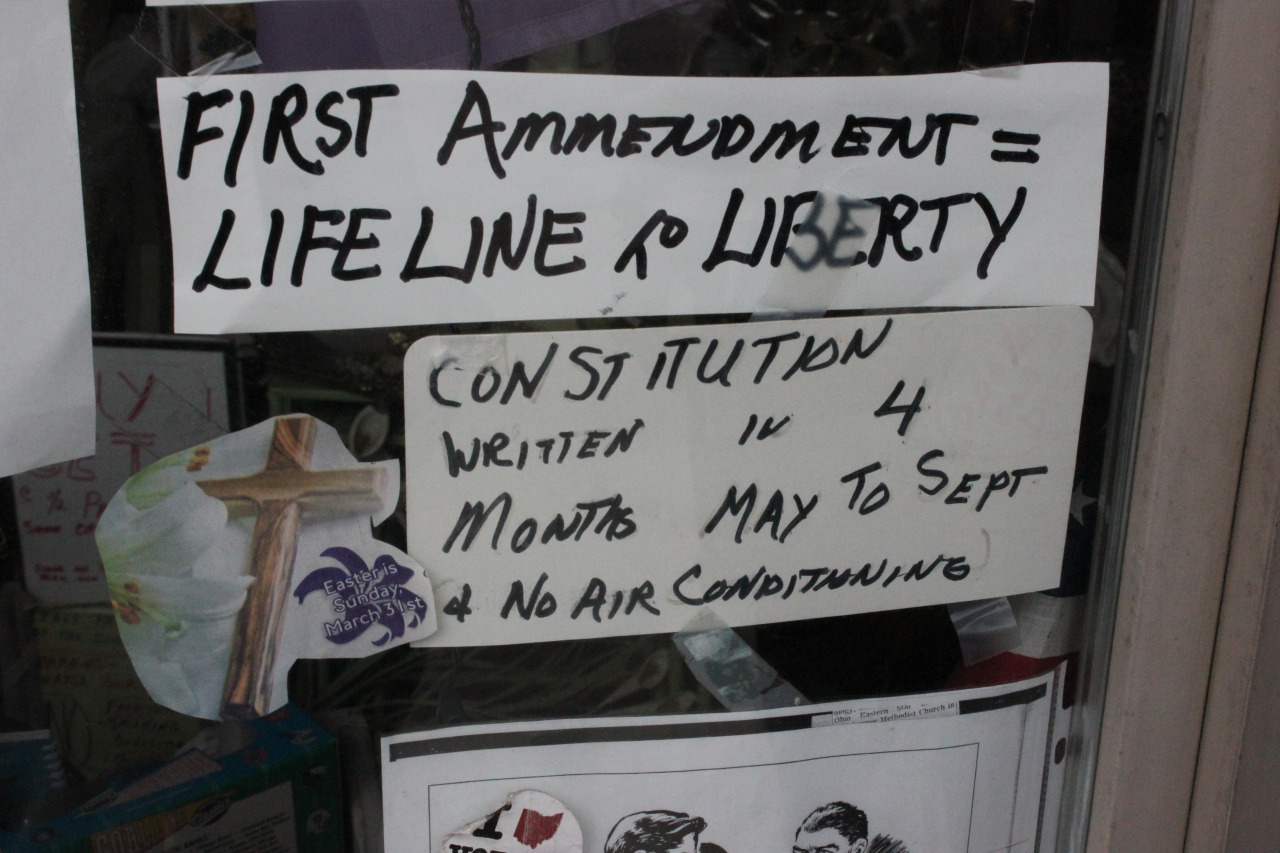 FIRST AMMENDMENT =
LIFE LINE to LIBERTY
CONSTITUTION
WRITTEN IN 4
MONTHS MAY TO SEPT
& NO AIR CONDITIONING
Easter is
Sunday,
March 31st
Eastern Star
Ohio Methodist Church in
I